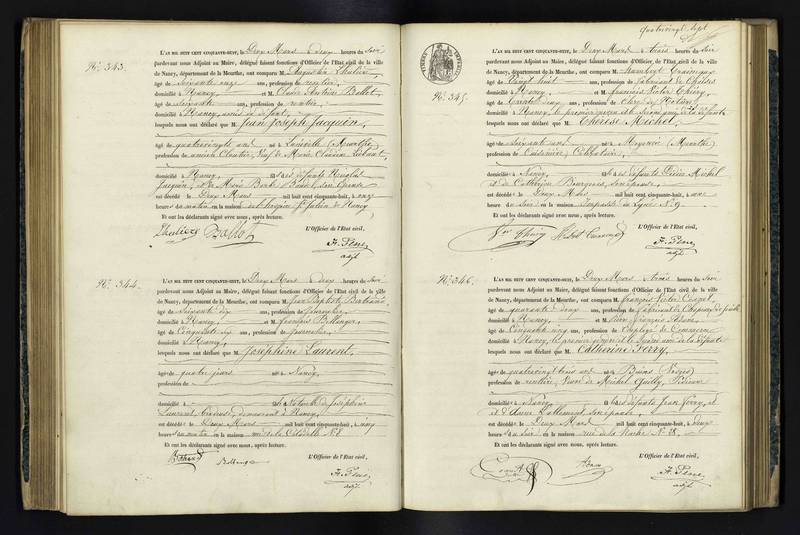 N.° 343.
L'AN MIL HUIT CENT CINQUANTE-HUIT, le Deux Mars à deux heures du Soir
pardevant nous Adjoint au Maire, délégué faisant fonctions d'Officier de l'Etat civil de la ville
de Nancy, département de la Meurthe, ont comparu M. Augustin Thalier
âgé de Soixante onze ans, profession de rentier,
domicilié à Nancy, et M. Claude Antoine Ballot
âgé de Soixante ans, profession de rentier,
domicilié à Nancy, amis du défunt,
lesquels nous ont déclaré que M. Jean Joseph Jacquin,
âgé de quatrevingt ans né à Lunéville (Meurthe)
profession de ancien Chantre, Veuf de Marie
domicilié à Nancy, fils des défunts Nicolas
Jacquin, et de Marie son épouse
est décédé le Deux Mars mil huit cent cinquante-huit, à onze
heures du matin en la maison de l'hospice St Julien de Nancy
Et ont les déclarants signé avec nous, après lecture.
L'Officier de l'Etat civil,
adjt
N.° 344.
L'AN MIL HUIT CENT CINQUANTE-HUIT, le Deux Mars à deux heures du Soir
pardevant nous Adjoint au Maire, délégué faisant fonctions d'Officier de l'Etat civil de la ville
de Nancy, département de la Meurthe, ont comparu M. Jean Baptiste Bertrand
âgé de Soixante dix ans, profession de Journalier,
domicilié à Nancy, et M. François Bellenger,
âgé de Cinquante six ans, profession de Journalier,
domicilié à Nancy,
lesquels nous ont déclaré que M. Joséphine Laurent,
âgé de quatre jours né à Nancy,
profession de
domicilié à fille Naturelle de Joséphine
Laurent, demeurant à Nancy,
est décédé le Deux Mars mil huit cent cinquante-huit, à cinq
heures du matin en la maison rue de la Citadelle N.° 8
Et ont les déclarants signé avec nous, après lecture.
L'Officier de l'Etat civil,
adjt
quatrevingt sept
N.° 345.
L'AN MIL HUIT CENT CINQUANTE-HUIT, le Deux Mars à trois heures du Soir
pardevant nous Adjoint au Maire, délégué faisant fonctions d'Officier de l'Etat civil de la ville
de Nancy, département de la Meurthe, ont comparu M. Humbert
âgé de Vingt huit ans, profession de fabricant de Chaises
domicilié à Nancy, et M. François Victor Thiéry,
âgé de Trente deux ans, profession de Clerc de Notaire
domicilié à Nancy, le premier neveu et le second ami de la défunte
lesquels nous ont déclaré que M. Thérèse Michel,
âgé de Soixante ans né à (Meurthe)
profession de Cuisinière, Célibataire,
domicilié à Nancy, fille des défunts Michel
et de Catherine Bourgeois, son épouse,
est décédé le Deux Mars mil huit cent cinquante-huit, à une
heure du soir en la maison Impasse du Lycée N.° 9.
Et ont les déclarants signé avec nous, après lecture.
L'Officier de l'Etat civil,
adjt
N.° 346.
L'AN MIL HUIT CENT CINQUANTE-HUIT, le Deux Mars à trois heures du Soir
pardevant nous Adjoint au Maire, délégué faisant fonctions d'Officier de l'Etat civil de la ville
de Nancy, département de la Meurthe, ont comparu M. François Victor
âgé de quarante deux ans, profession de fabricant de Chapeaux de paille
domicilié à Nancy, et M. François
âgé de Cinquante cinq ans, profession de Employé de Commerce
domicilié à Nancy, le premier et le second ami de la défunte
lesquels nous ont déclaré que M. Catherine Ferry,
âgé de quatrevingt trois ans né à Bains (Vosges)
profession de rentière, Veuve de Michel
domicilié à Nancy, fille des défunts Jean Ferry, et
et d'Anne Lallement, son épouse,
est décédé le Deux Mars mil huit cent cinquante-huit, à deux
heures du Soir en la maison rue de la
Et ont les déclarants signé avec nous, après lecture.
L'Officier de l'Etat civil,
adjt